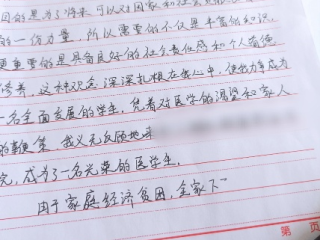 目的是为了将来可以对国家和社会贡献
的一份力量，所以重要的不仅是丰富的知识，
更重要的是具备良好的社会责任感和个人道德
修养，这种观念深深扎根在我心中，使我力争成为
一名全面发展的学生，凭着对医学的渴望和家人
的鞭策，我义无反顾地来
完，成为了一名光荣的医学生，
由于家庭经济贫困，全家下一
第 页